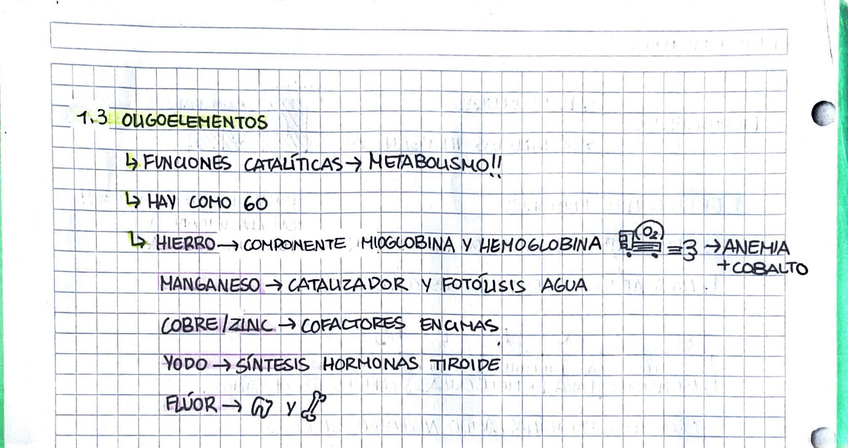 1.3 OLIGOELEMENTOS
↳ FUNCIONES CATALÍTICAS → METABOLISMO!!
↳ HAY COMO 60
↳ HIERRO → COMPONENTE MIOGLOBINA Y HEMOGLOBINA O₂ → ANEMIA
+ COBALTO
MANGANESO → CATALIZADOR Y FOTÓLISIS AGUA
COBRE/ZINC → COFACTORES ENCIMAS.
YODO → SÍNTESIS HORMONAS TIROIDE
FLÚOR → Y